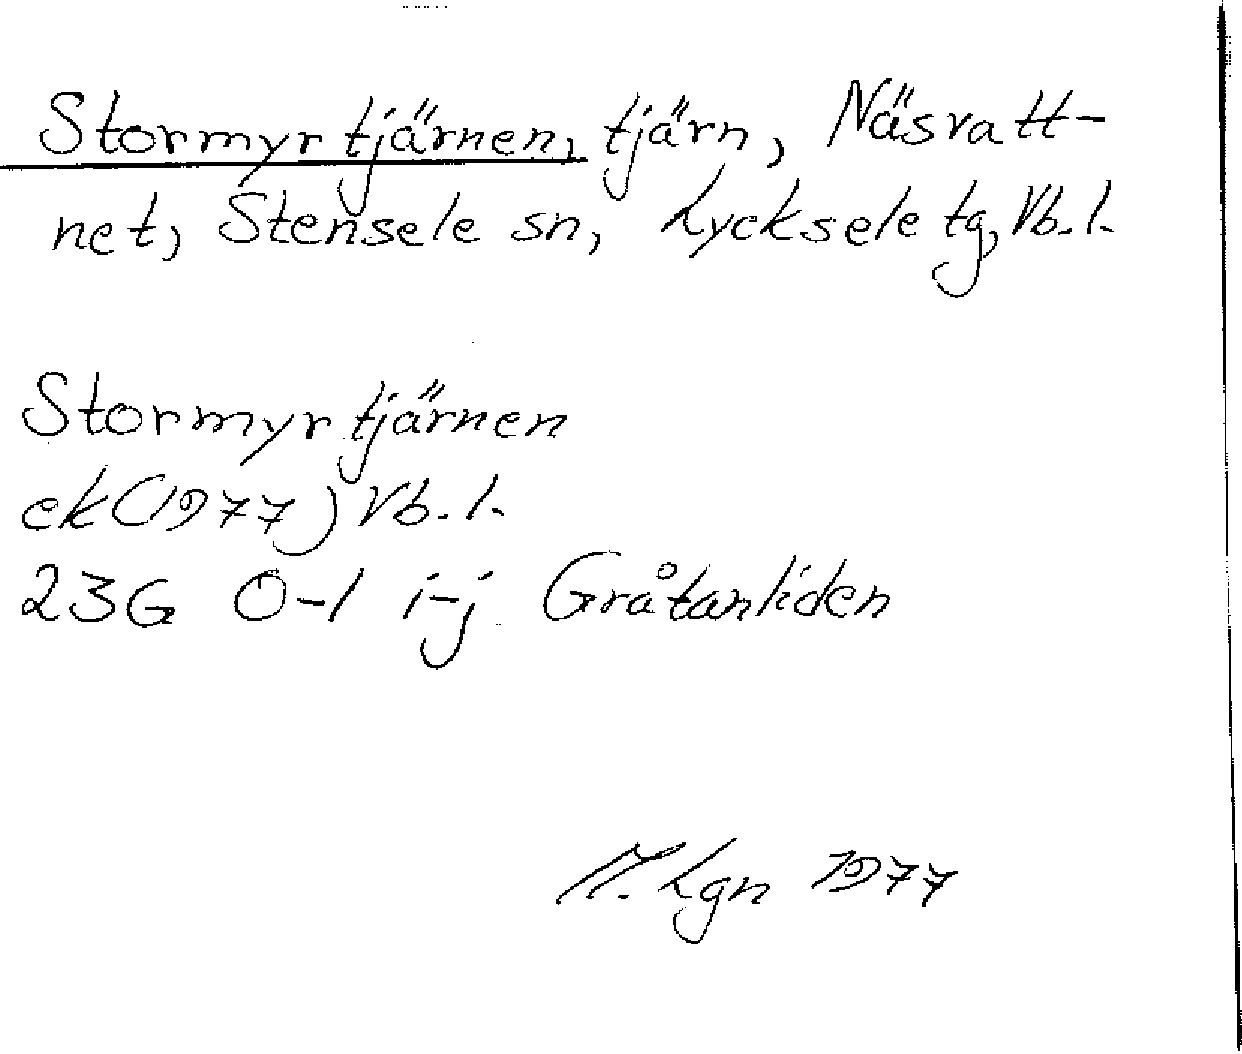 Stormyrtjärnen, tjärn, Näsvatt-
net, Stensele sn, Lycksele tg, Vb. l.
Stormyrtjärnen
ek (1977) Vb. l.
23G 0-1 i-j Gråtanliden
M. Lgn 1977